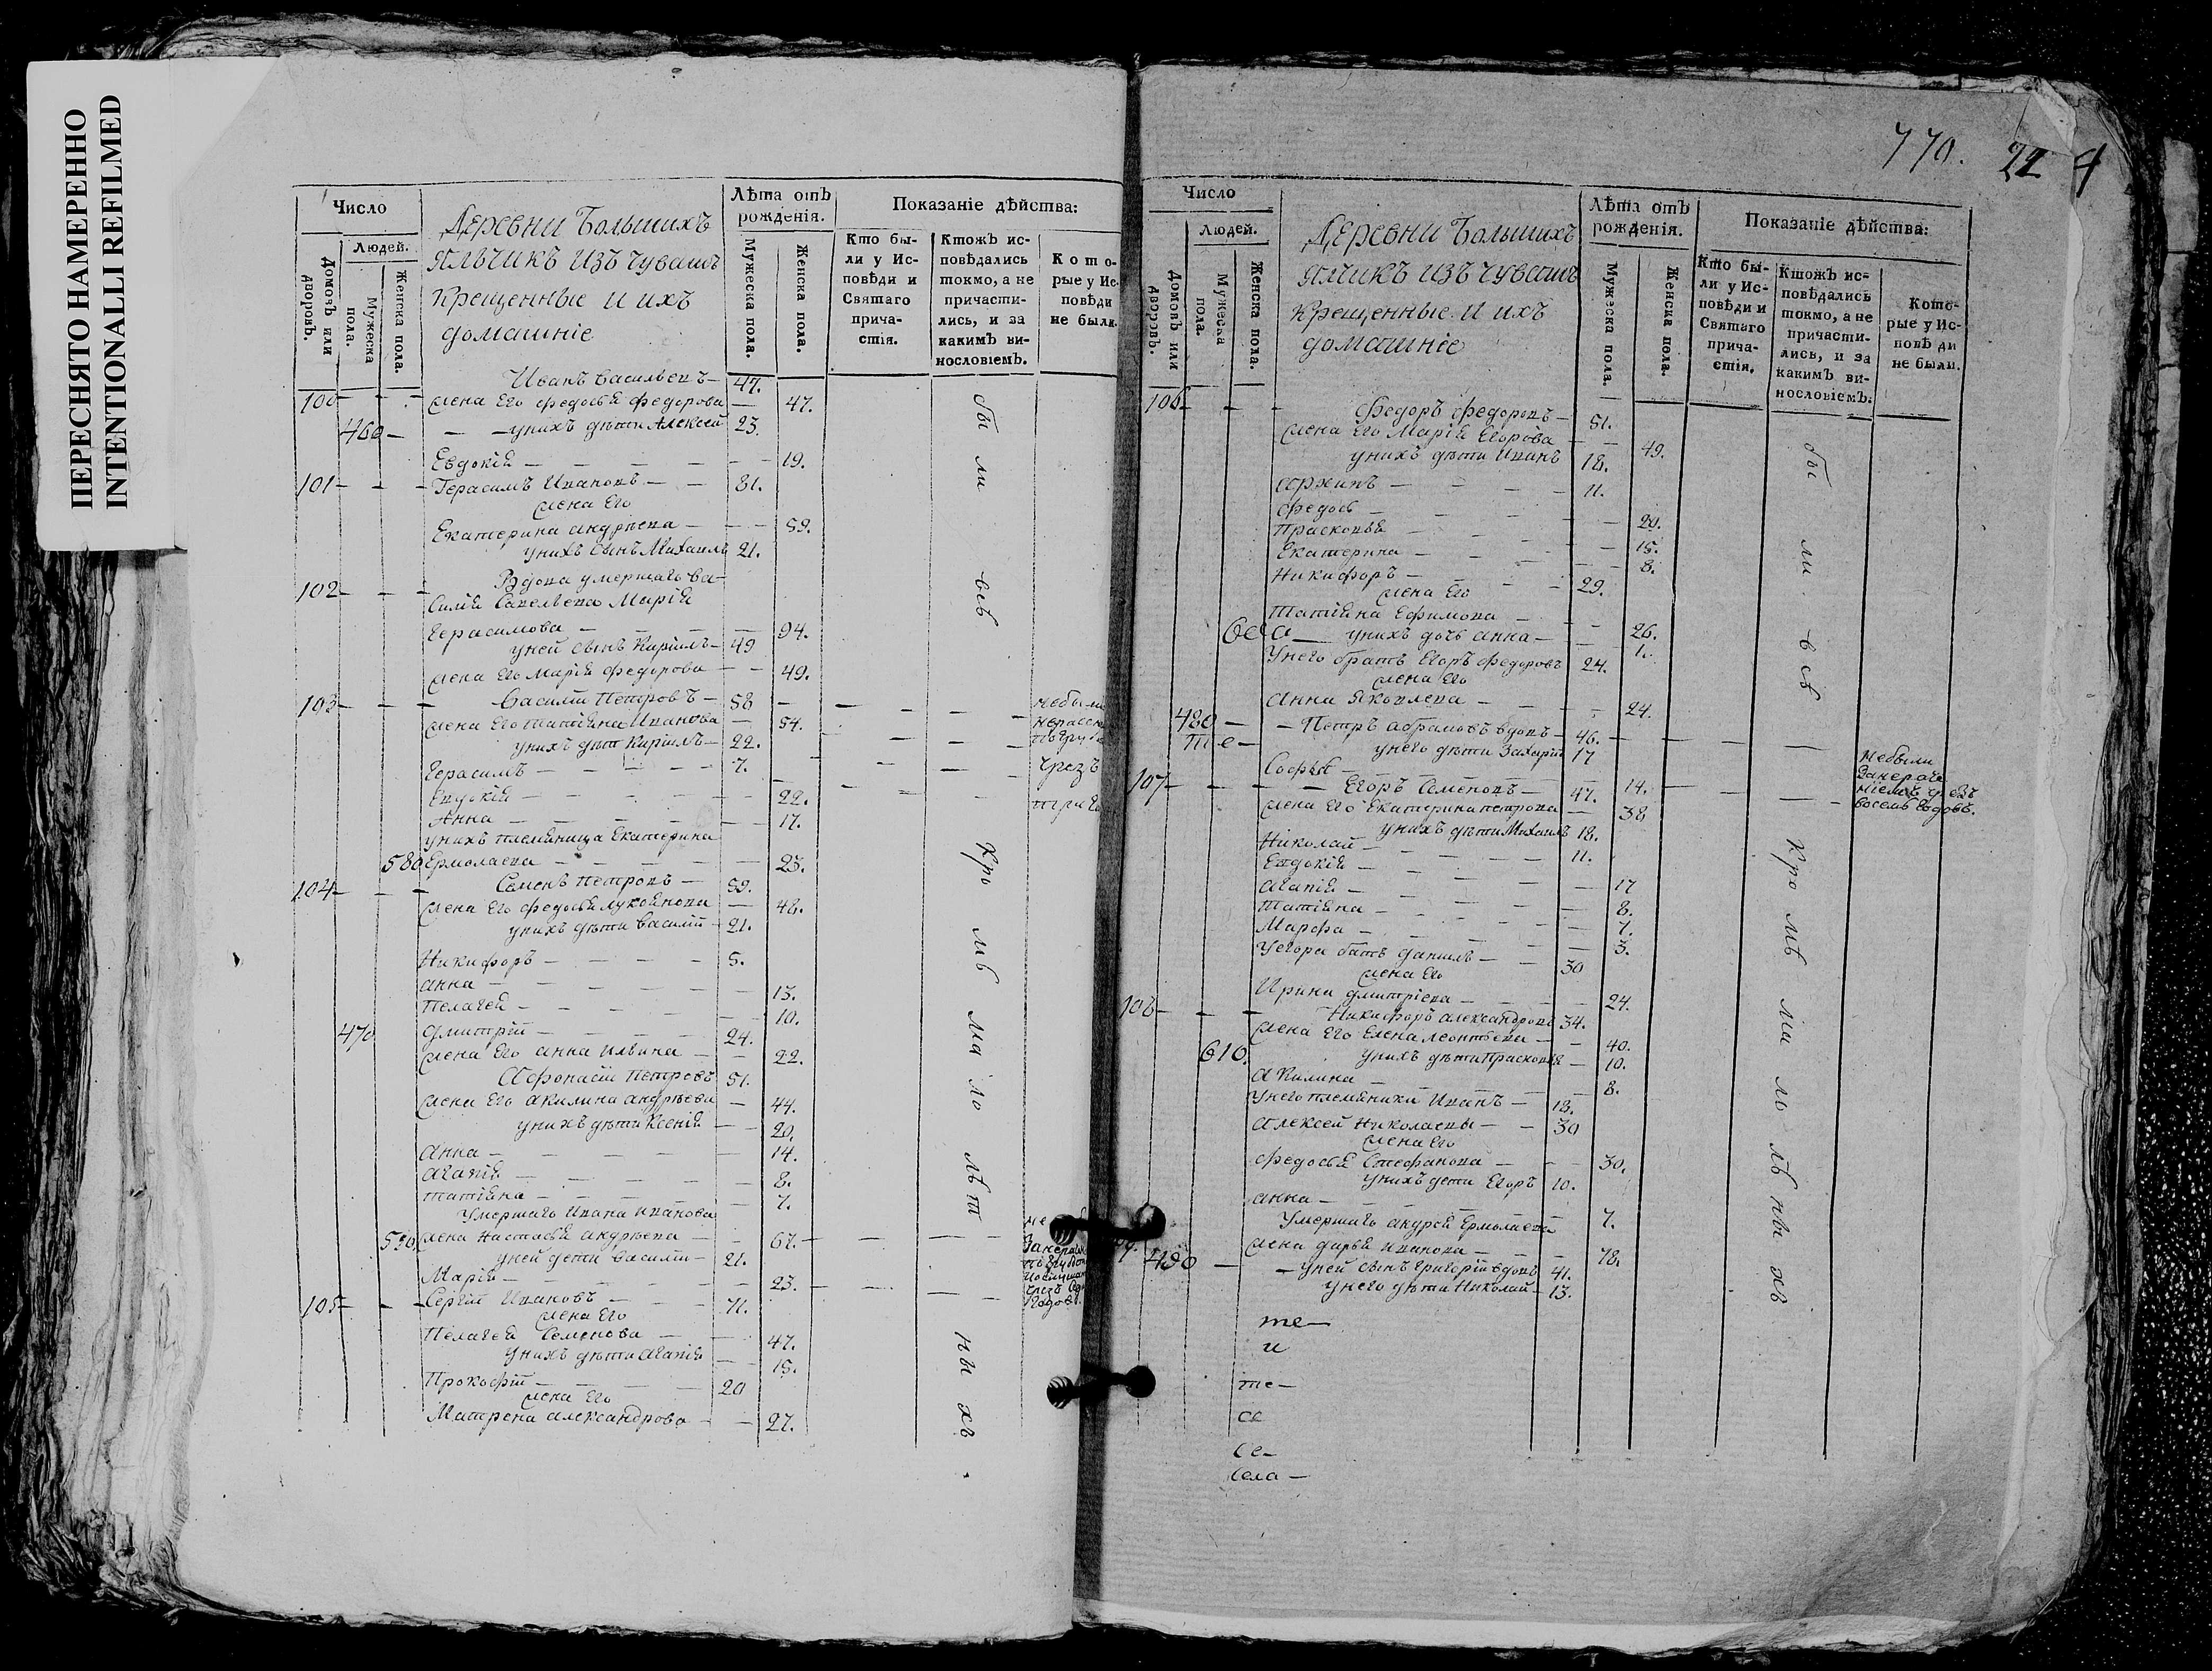 ПЕРЕСНЯТО НАМЕРЕННО
INTENTIONALLI REFILMED
Число
Людей.
Домовъ или дворовъ.
Мужеска пола.
Женска пола.
Деревни Большихъ
яльчикъ изъ чувашъ
крещенные и ихъ
домашніе
Лѣта отъ рожденія.
Мужеска пола.
Женска пола.
Показаніе дѣйства:
Кто бы-
ли у Ис-
повѣди и
Святаго
прича-
стія.
Ктожъ ис-
повѣдались
токмо, а не
причасти-
лись, и за
какимъ ви-
нословіемъ.
Кото-
рые у Ис-
повѣди
не были.
Иванъ Васильевъ — 47.
100 — — — жена Его Федосья Федорова — 47.
460 — — — унихъ дѣти Алексей 23.
Евдокія — — — — 19.
101 — — — Герасимъ Ивановъ — — 81.
жена Его
Екатерина андрѣева — — — 59.
унихъ сынъ Михаилъ 21.
Вдова умершаго Ва-
102 — — — силія Савельева Марія
Герасимова — — 94.
уней сынъ Кирилъ — 49
жена Его Марія Федорова — — 49.
103 — — — Василій Петровъ — 58 — — — — небыли
жена Его татіяна Иванова — 54.
унихъ дѣт Кирилъ — 22.
Герасимъ — — — — 7. чрезъ
Евдокія — — — — 22.
Анна — — — — 17.
унихъ племяница Екатерина
580 Ермолаева — — — — 23.
104 — — — Семенъ Петровъ — 59.
жена Его Федосья лукоянова — 48.
унихъ дѣти Василій — 21.
Никифоръ — — — — 5.
анна — — — — 13.
Пелагея — — — — 10.
470 Дмитрій — — — — 24.
жена Его анна ильина — — 22.
Афонасіи Петровъ 51.
жена Его акилина андрѣева — 44.
унихъ дѣти Ксенія — — 20.
Анна — — — — 14.
агапія — — — — 8.
татіяна — — — — 7.
Умершаго Ивана Иванова
590 жена Настасья андрѣева — — 67. — — — —
уней дети Василіи — 21.
Марія — — — — 23. — — — —
105 — — — Сергій Ивановъ — — 71. годовъ.
жена Его
Пелагея Семенова — — 47.
унихъ дѣти агапія — 15.
Прокофій — — — — 20
жена Его
Матрена александрова — — 27.
бы ли всѣ кро мѣ ма ло лѣт ны хъ.
770.
22 4
Число
Людей.
Домовъ или дворовъ.
Мужеска пола.
Женска пола.
Деревни Большихъ
ялчикъ изъ чувашъ
крещенные и ихъ
домашніе
Лѣта отъ рожденія.
Мужеска пола.
Женска пола.
Показаніе дѣйства:
Кто бы-
ли у Ис-
повѣди и
Святаго
прича-
стія.
Ктожъ ис=
повѣдались
токмо, а не
причасти-
лись, и за
какимъ ви-
нословіемъ.
Кото-
рые у Ис-
повѣ ди
не были.
106 — — — Федоръ Федоровъ — 51.
жена Его Марія Егорова — — 49.
унихъ дѣти Иванъ 18.
архипъ — — — — 11.
Федось — — — — 20.
Прасковья — — — — 15.
Екатерина — — — — 8.
Никифоръ — — — — 29.
жена Его
татіяна Ефимова — — — 26.
600 унихъ дочь анна — — 1.
Унего братъ Егоръ Федоровъ 24.
жена Его
анна яковлева — — — — 24.
480 — — Петръ абрамовъ вдовъ — 46. — — —
те — унего дѣти Захарій 17 небыли
Софья — — — — 14.
107 — — — Егоръ Семеновъ — — 47.
жена Его Екатерина петрова — 38 восемь годовъ.
унихъ дѣти Михаилъ 18.
Николай — — — — 11.
Евдокія — — — — 17
агапія — — — — 8.
татіяна — — — — 7.
Марфа — — — — 3.
У егора батъ данилъ — — 30
жена Его
Ирина дмитріева — — — — 24.
108 — — — Никифоръ александровъ 34.
жена Его Елена леонтьева — — 40.
610. унихъ дѣти Прасковья — 10.
акилина — — — — 8.
Унего племяники Иванъ — 18.
алексей Николаевы — — 30
жена Его
федосья Стефанова — — — 30.
унихъ дети Егоръ 10.
анна — — — — 7.
Умершаго андрея Ермолаева
жена дарья иванова — — — 78.
490 — — уней сынъ григорій вдовъ 41.
унего дѣти Николай — 13.
те —
и
те —
се
Се —
Села —
бы ли всѣ кро мѣ ма ло лѣ тны хъ